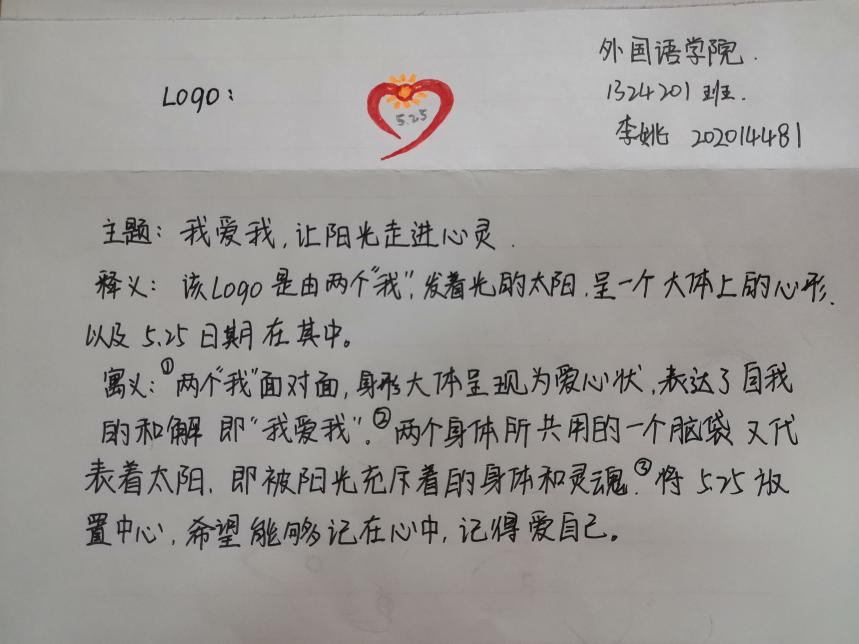 外国语学院.
Logo:
5.25
1324201班.
李姚 202014481
主题：我爱我，让阳光走进心灵.
释义：该Logo是由两个"我"，发着光的太阳，呈一个大体上的心形.
以及5.25日期在其中。
寓义：①两个"我"面对面，身形大体呈现为爱心状，表达了自我
的和解 即"我爱我"。②两个身体所共用的一个脑袋又代
表着太阳，即被阳光充斥着的身体和灵魂.③将5.25放
置中心，希望能够记在心中，记得爱自己。